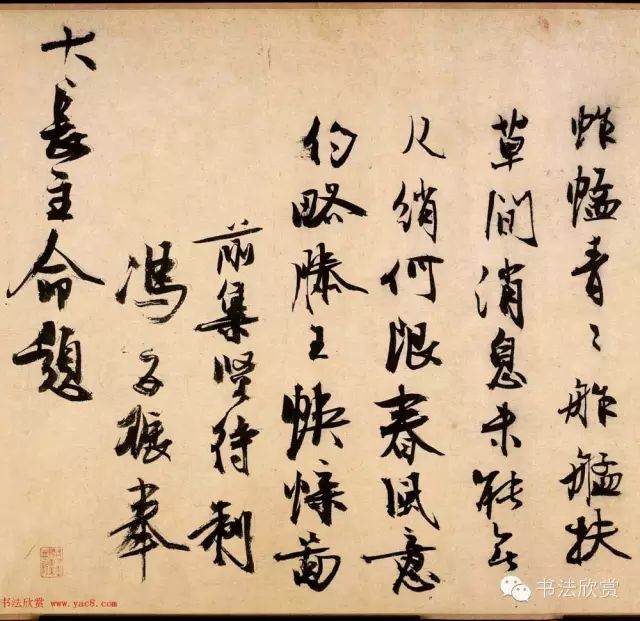 蚱蜢青〻舴艋扶
草间消息未能无
尺绡何限春风意
约略滕王蛱蝶图
前集贤待制
冯子振奉
大长主命题
书法欣赏 www.yac8.com
书法欣赏